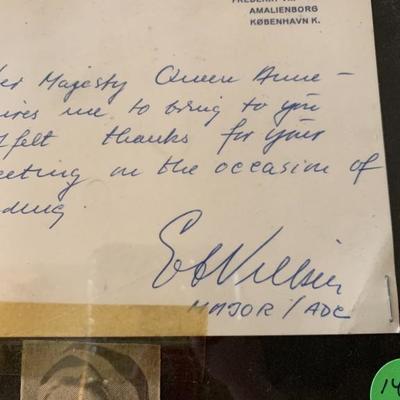 FREDERIK
AMALIENBORG
KØBENHAVN K.
er Majesty Queen Anne-
ires me to bring to you
tfelt thanks for your
eeting on the occasion of
dding.
MAJOR / ADC
14